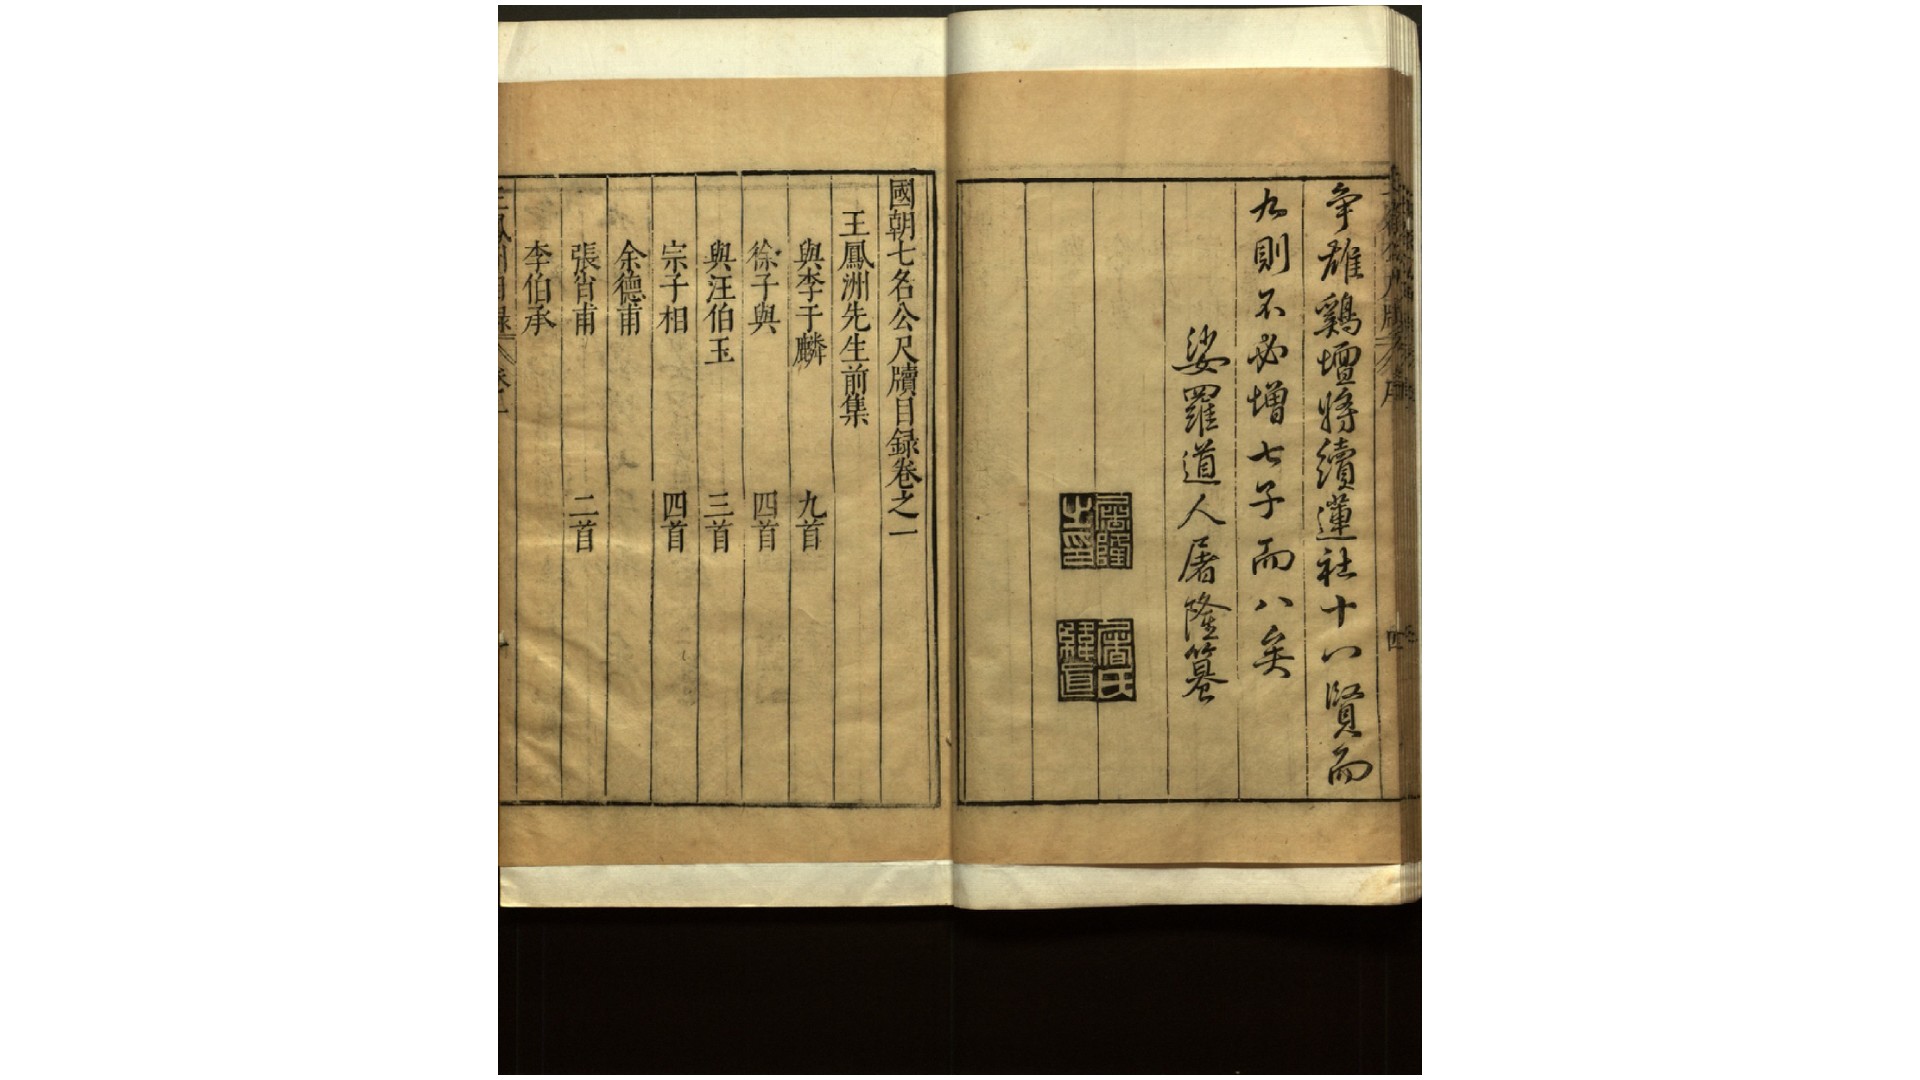 爭雄鷄壇將續蓮社十八賢而
九則不必增七子而八矣
娑羅道人屠隆篹
屠隆之印
屠氏緯眞
國朝七名公尺牘目録卷之一
王鳳洲先生前集
與李于麟 九首
徐子與 四首
與汪伯玉 三首
宗子相 四首
余德甫
張肖甫 二首
李伯承